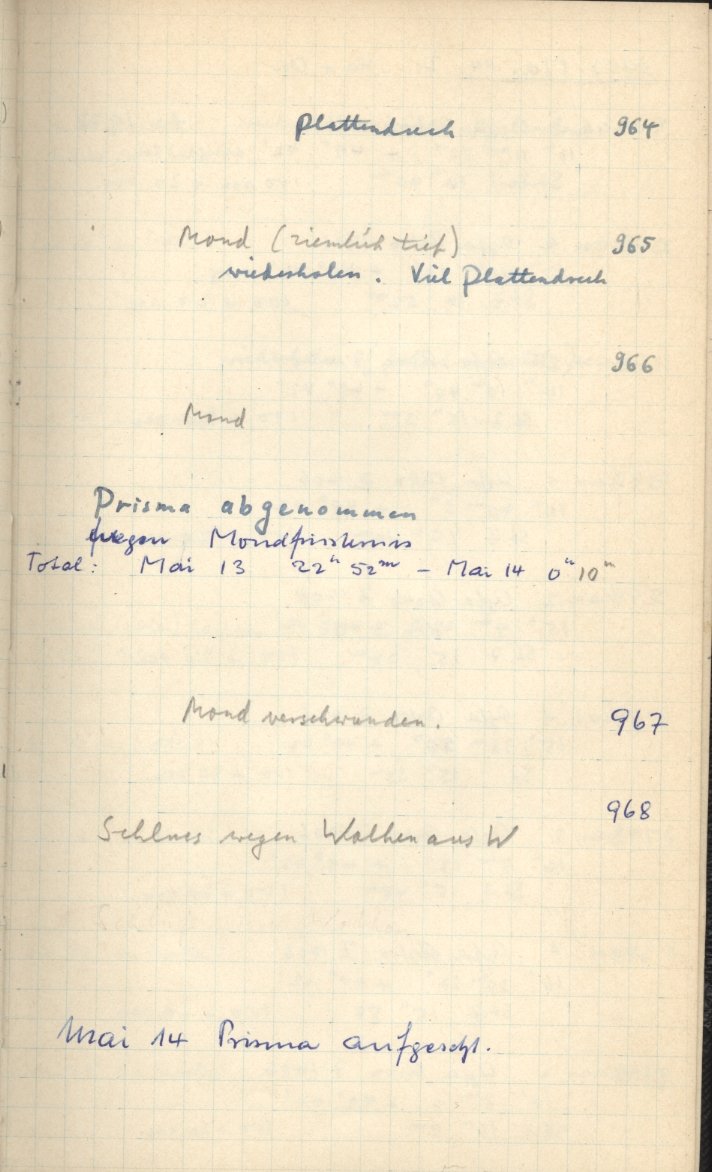 Plattendreck 964
Mond (ziemlich tief) 965
wiederholen. Viel Plattendreck
966
Mond
Prisma abgenommen
wegen Mondfinsternis
Total: Mai 13 22h 52m – Mai 14 0h 10m
Mond verschwunden. 967
968
Schluss wegen Wolken aus W
Mai 14 Prisma aufgesetzt.